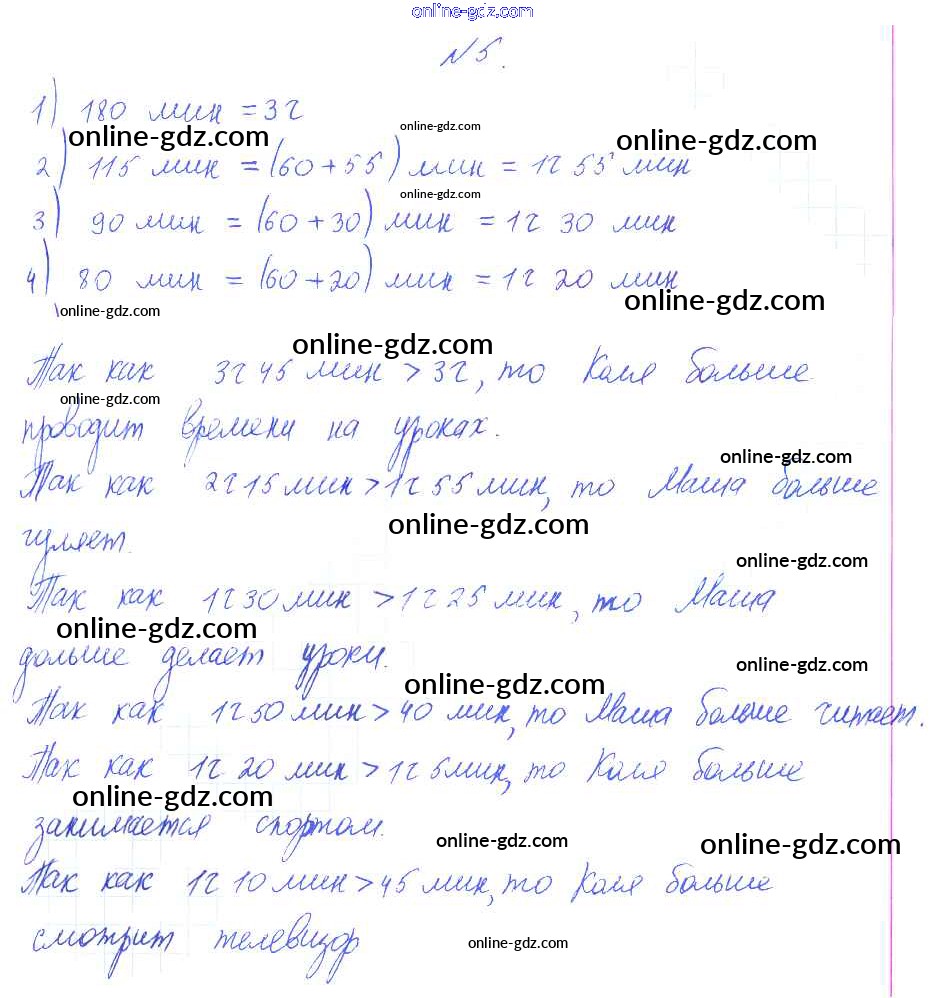 online-gdz.com
№5.
1) 180 мин = 3ч
online-gdz.com
online-gdz.com
online-gdz.com
2) 115 мин = (60+55) мин = 1ч 55 мин
online-gdz.com
3) 90 мин = (60+30) мин = 1ч 30 мин
4) 80 мин = (60+20) мин = 1ч 20 мин
online-gdz.com
online-gdz.com
online-gdz.com
Так как 3ч 45 мин > 3ч, то Коля больше
online-gdz.com
проводит времени на уроках.
online-gdz.com
Так как 2ч 15 мин > 1ч 55 мин, то Маша больше
online-gdz.com
гуляет.
online-gdz.com
Так как 1ч 30 мин > 1ч 25 мин, то Маша
online-gdz.com
дольше делает уроки.
online-gdz.com
online-gdz.com
Так как 1ч 50 мин > 40 мин, то Маша больше читает.
Так как 1ч 20 мин > 1ч 5 мин, то Коля больше
online-gdz.com
занимается спортом.
online-gdz.com
online-gdz.com
Так как 1ч 10 мин > 45 мин, то Коля больше
смотрит телевизор
online-gdz.com